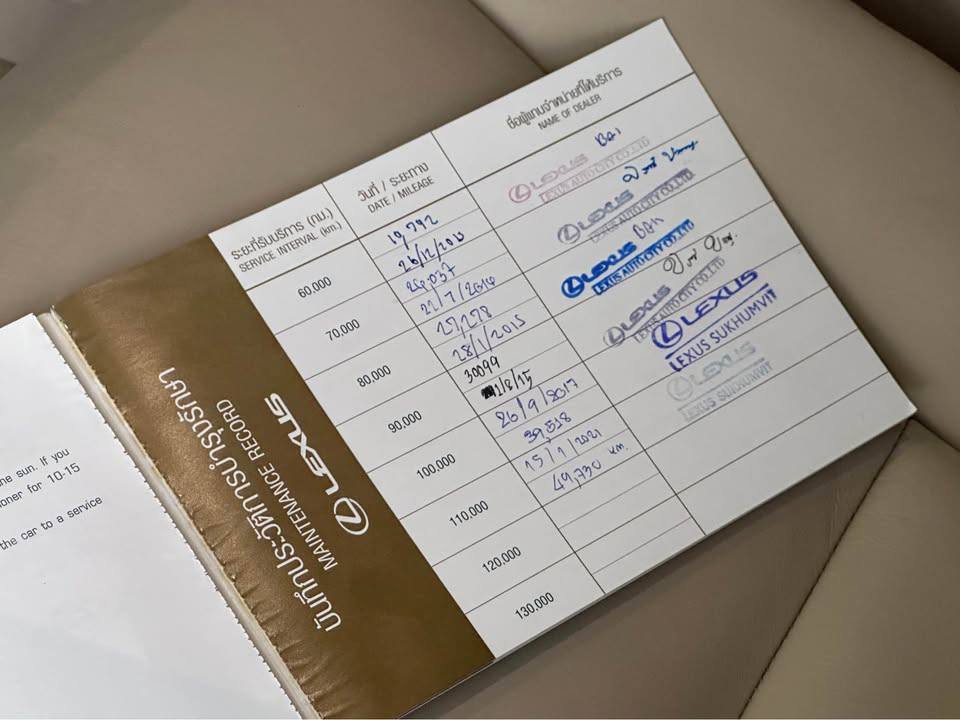 he sun. If you
oner for 10-15
the car to a service
บันทึกประวัติการบำรุงรักษา
MAINTENANCE RECORD
LEXUS
ระยะที่รับบริการ (กม.)
SERVICE INTERVAL (km.)
วันที่ / ระยะทาง
DATE / MILEAGE
ชื่อผู้แทนจำหน่ายที่ให้บริการ
NAME OF DEALER
60,000
19,792
26/12/2013
LEXUS
LEXUS AUTO CITY CO.,LTD.
70,000
24,037
22/7/2014
LEXUS
LEXUS AUTO CITY CO.,LTD.
80,000
27,278
28/1/2015
LEXUS
LEXUS AUTO CITY CO.,LTD.
90,000
30099
/8/15
LEXUS
LEXUS AUTO CITY CO.,LTD.
100,000
26/9/2017
39,518
LEXUS
LEXUS SUKHUMVIT
110,000
15/1/2021
49,730 km.
LEXUS
LEXUS SUKHUMVIT
120,000
130,000